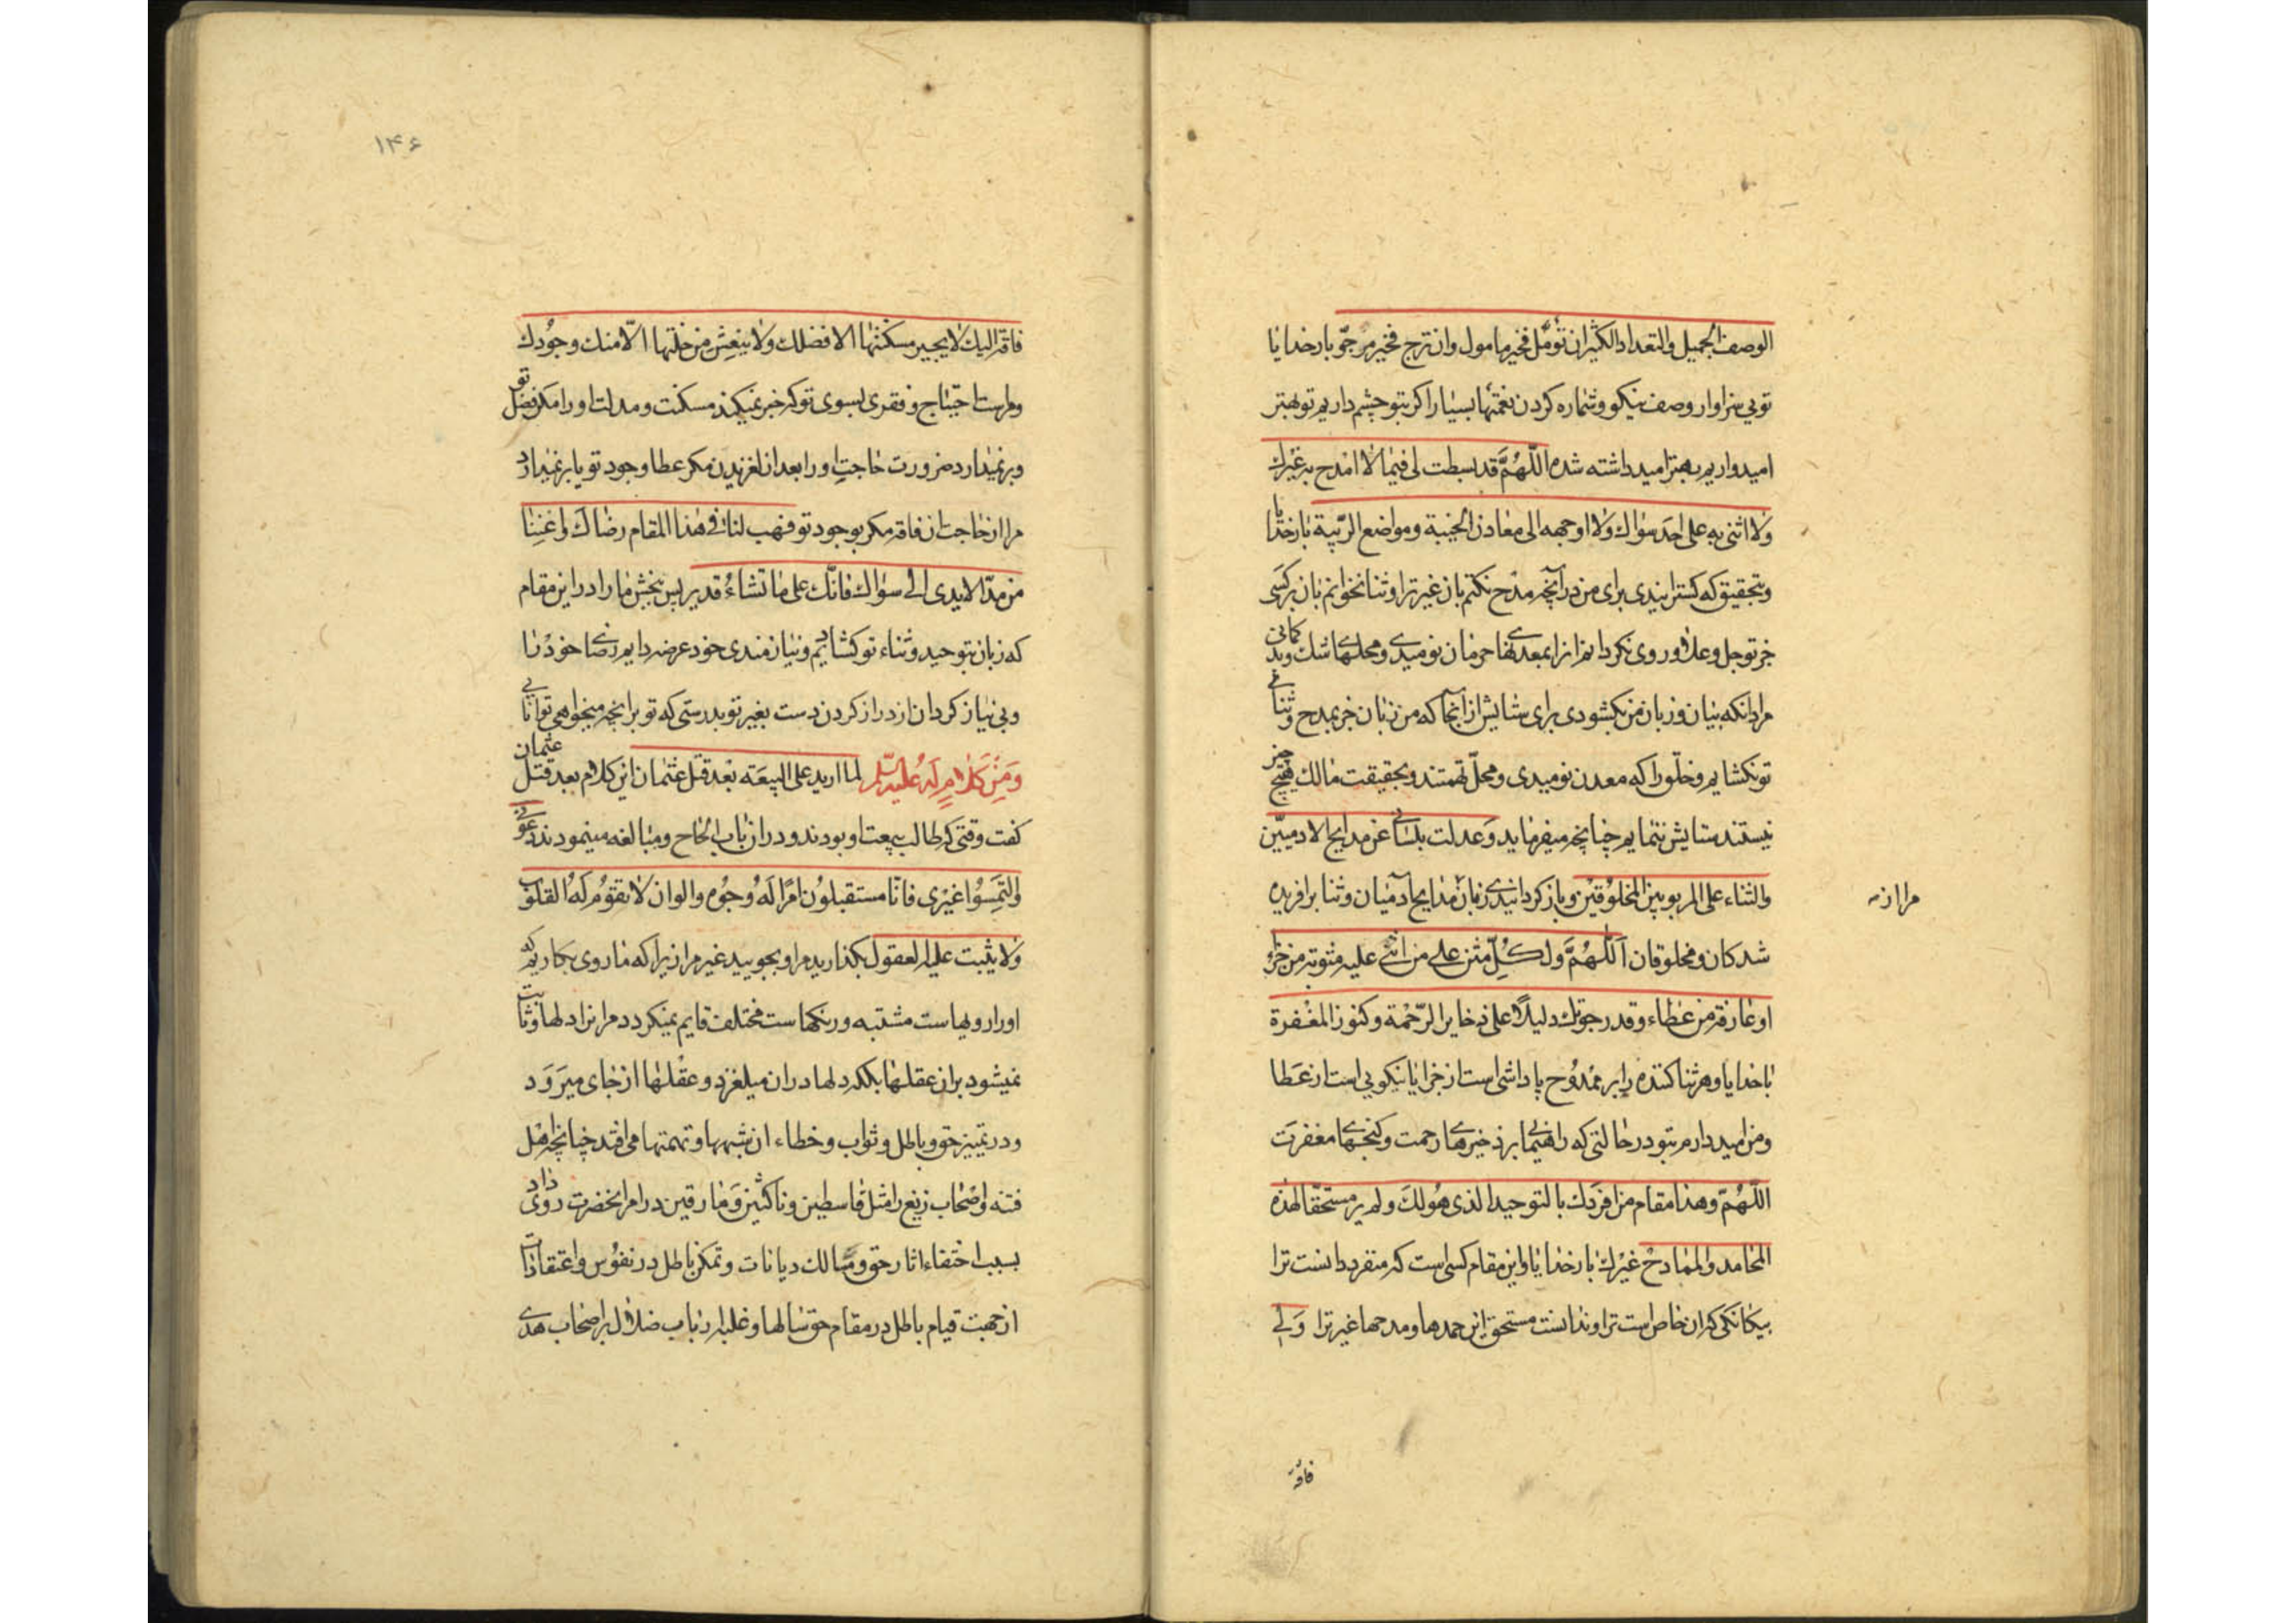 الوصف الجمیل والتعداد الکثیر ان تؤمّل فخیر مامول وان ترج فخیر مرجوّ بار خدایا
تویی سزاوار وصف نیکو و شماره کردن نعمتها بسیار اکر بتو چشم داریم تو بهتر
امید واریم بهتر امید داشته شده اللّهُمَّ قد بسطت لی فیما لا امدح به غیرك
ولا اثنی به علی احد سواك ولا اوجهه الی معادن الخیبة ومواضع الریبة بار خدایا
وبتحقیق که کسترانیدی برای من در آنچه مدح نکنم بان غیر ترا وثنا نخوانم بان بر کسی
جز تو جل وعلا و روی نکردانم ازا بمعدنهاء حرمان نومیدی ومحلهاء شك وبدکمانی
مراد آنکه بیان و زبان من نکشودی برای ستایش از آنجا که من زبان جز بمدح وثناء
تو نکشایم و خلق را که معدن نومیدی و محلّ تهمتند وبحقیقت مالك هیچ چیز
نیستند ستایش ننمایم چنانچه میفرماید وعدلت بلسانی عن مدایح الادمیّین
والثناء علی المربوبین المخلوقین وباز کردانیدی زبان مدایح آدمیان وثنا بر افریده
مرا از مـ
شدکان و مخلوقان اَللّهُمَّ ولکُلِّ مثن علی من اثنی علیه مثوبة من جزاء
او عارفة من عطاء وقد رجوتك دلیلاً علی ذخایر الرّحْمة وکنوز المغْفرة
بار خدایا وهر ثنا کننده را بر ممدُوح پاداشی است از جزا یا نیکویی است از عَطا
ومن امید دارم بتو در حالتی که راهنمایی بر ذخیرهاء رحمت وکنجهاء مغفرت
اللّهُمّ وهذا مقام من افردك بالتوحید الذی هُو لكَ ولم یر مستحقّا لهذه
المحامد والممادح غیْرك بار خدایا واین مقام کسی است که منفرد دانست ترا
بیکانکی که ان خاص است ترا وندانست مستحق این حمدها ومدحها غیر ترا وَلی
فاقة
۱۴۶
فاقة الیك لا یجبر مسکنتها الا فضلك ولا ینعش من خلتها الّا منك وجُودك
ومراست احتیاج و فقری بسوی تو که خبر نمیکند مسکنت ومذلت او را مکر فضل تو
وبر نمیدارد ضرورت حاجت او را بعد از لغزیدن مکر عطا وجود تو یا بر نمیدارد
مرا از حاجت ان فاقه مکر بوجود تو فهب لنا فی هذا المقام رضاك واغننا
من مدّ الایدی الی سواك فانّك علی ما تشاءُ قدیر پس ببخش ما را در این مقام
که زبان بتوحید وثناء تو کشادیم ونیازمندی خود عرضه دادیم رضاء خودْ را
وبی نیاز کردان از دراز کردن دست بغیر تو بدرستی که تو بر آنچه میخواهی توانایی
وَمِنْ کَلامٍ لَهُ عَلیه السّلم لما ارید علی البیعَة بعْد قتل عثمان این کلام بعد قتل عثمان
کفت وقتی که طالب بیعت او بودند ودر ان باب الحاح ومبالغه مینمودند دعونی
والتمِسُوا غیْری فانّا مستقبلوُن امْرًا لَهُ وجُوه والوان لا تقوُم لَهُ القلوب
ولا یثبت علیه العقول بکذارید مرا وبجویید غیر مرا زیرا که ما روی بکاریم که
اورا رویهاست مشتبه ورنکهاست مختلف قایم نمیکردد مر انرا دلها وثابت
نمیشود بران عقلها بلکه دلها در ان میلغزد وعقْلها از جای میرَوَد
ودر تمییز حق وباطل وثواب وخطاء ان بشبهها وتهمتها می افتد چنانچه اهل
فتنه واصْحاب زیغ را مثل قاسطین وناکثین وَمارقین در امر آنحضرت روی داد
بسبب اختفاء اثار حق ومسالك دیانات وتمکن باطل در نفوُس واعتقادات
از جهت قیام باطل در مقام حق سالها وغلبه ارباب ضلال بر اصْحاب هدی